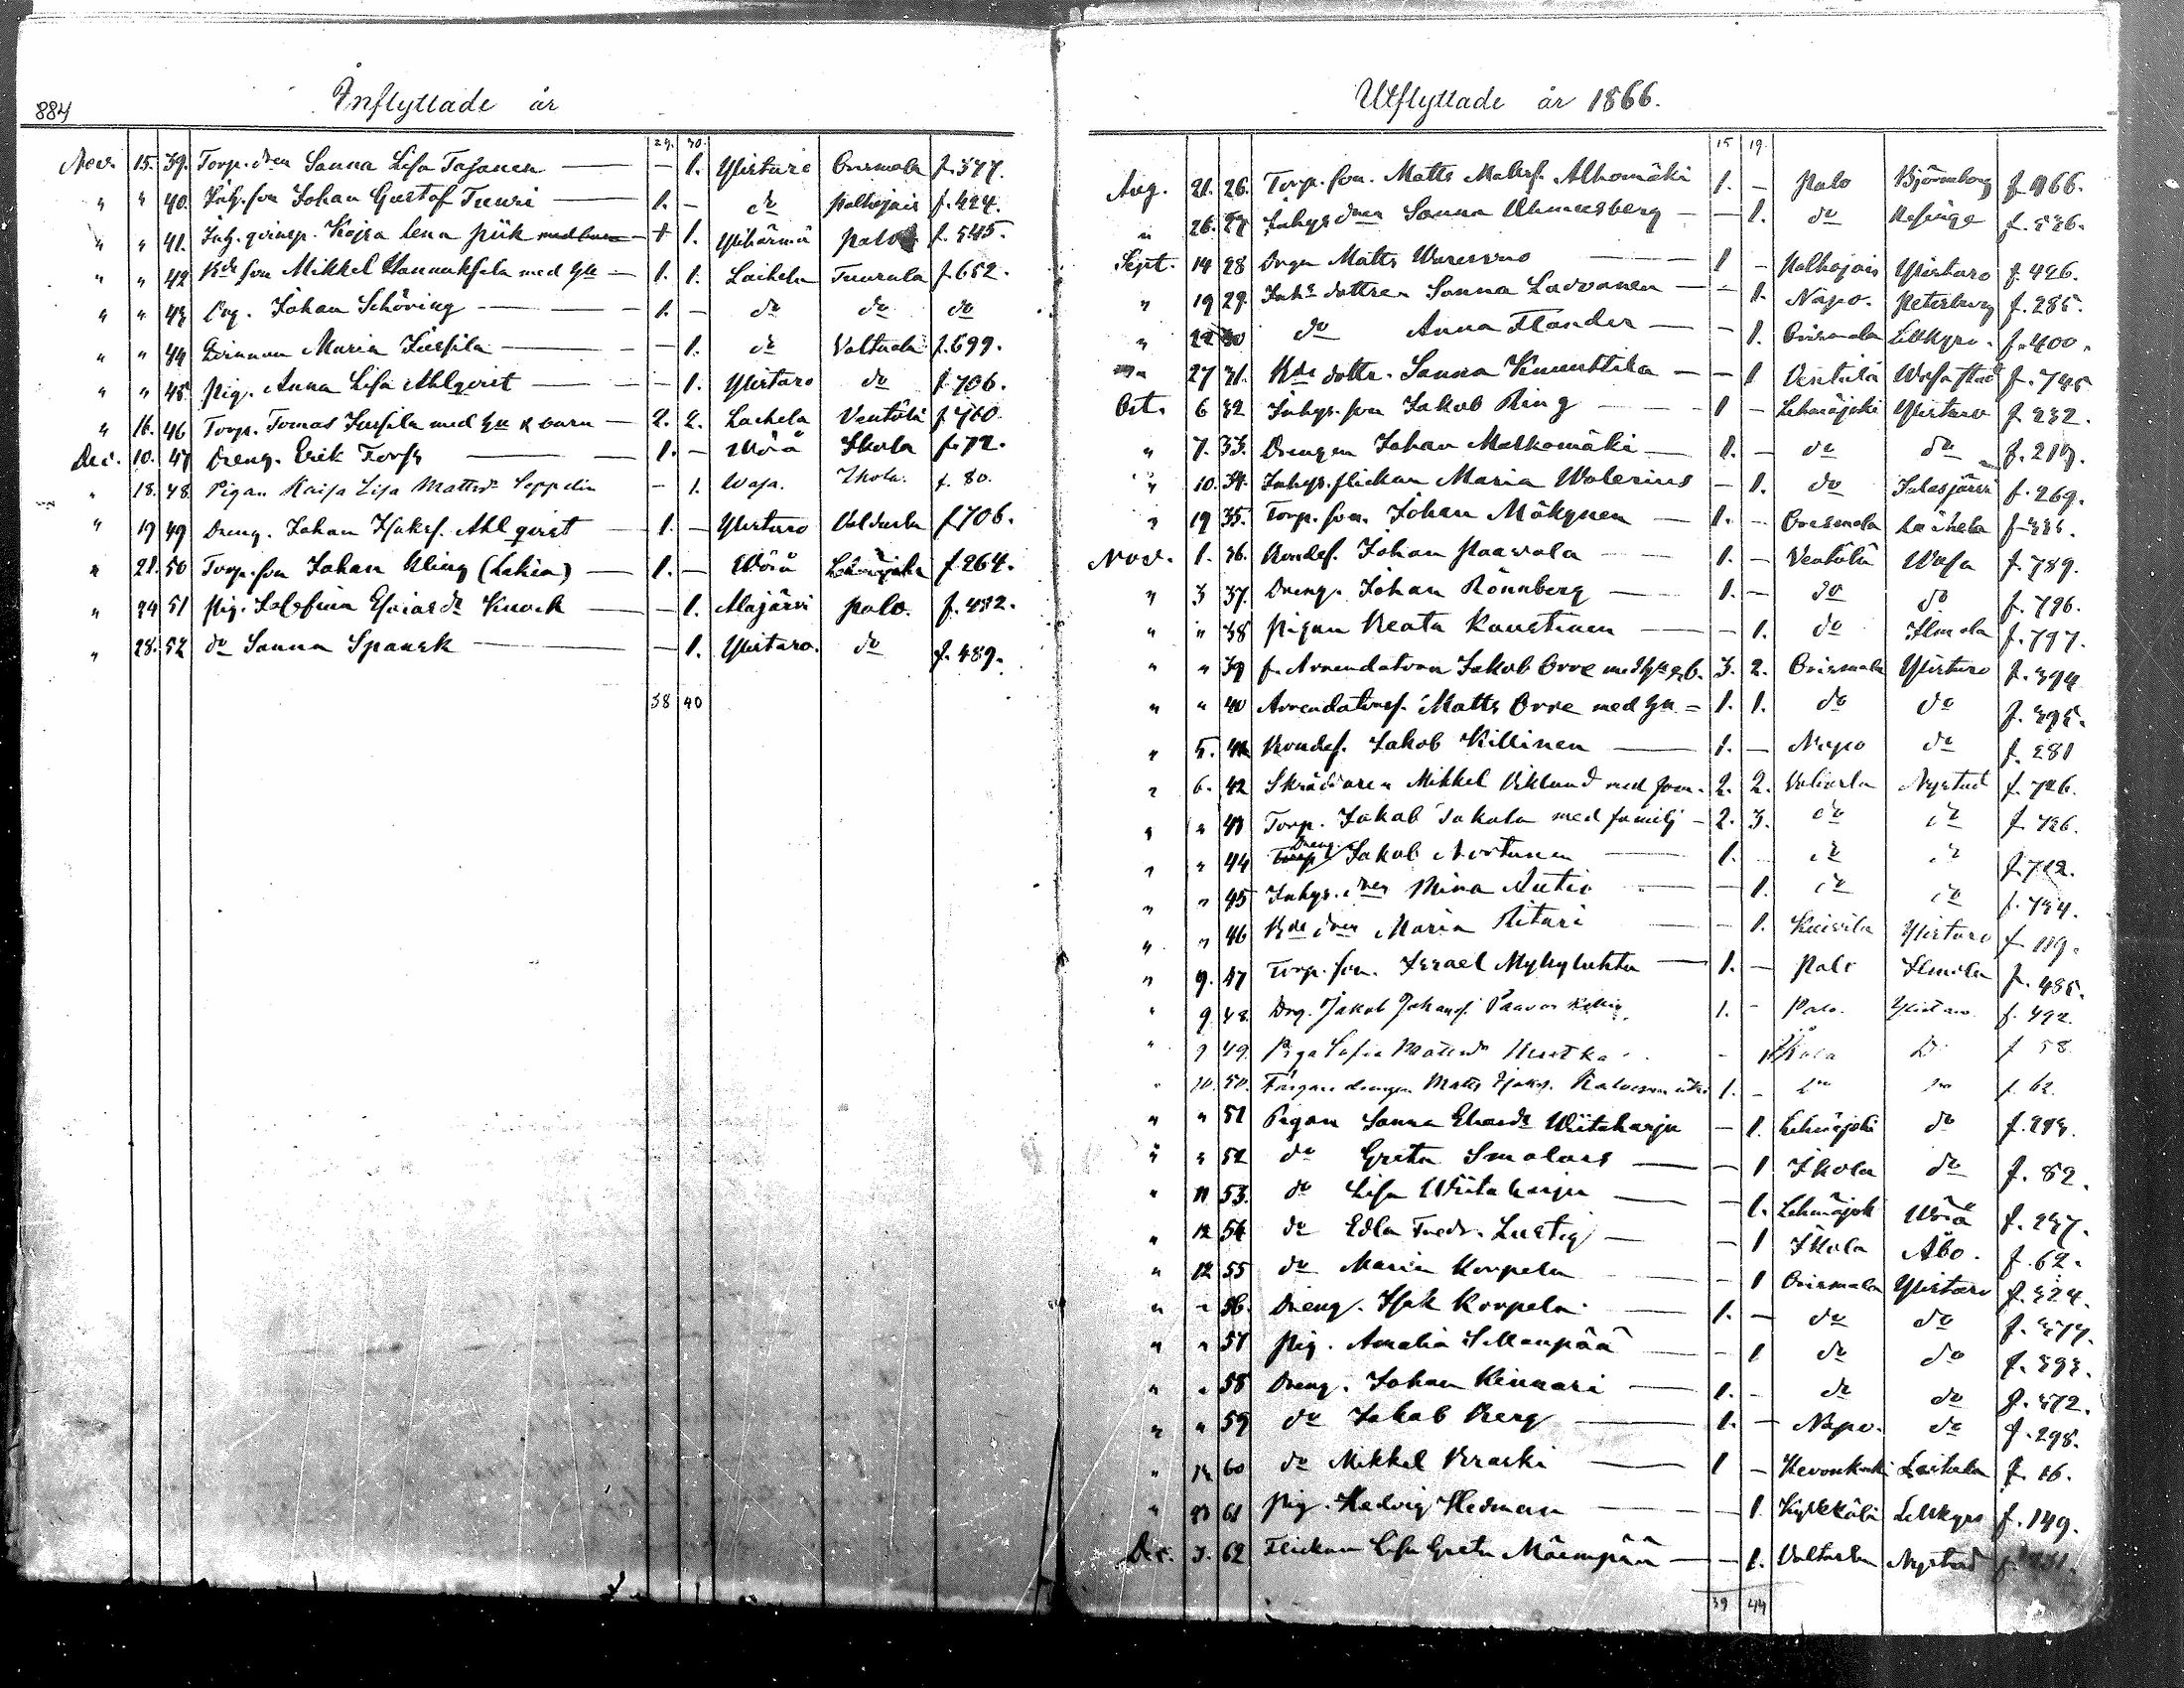 884
Inflyttade år
29. 30.
Nov. 15. 39. Torp. dren Sanna Lisa — — 1. Ylistaro Orismala f. 377.
" " 40. Inh. son Johan Gustaf Tuuri — 1. — do Palhojais f. 424.
" " 41. Inh. qvinsp. Kajsa Lena Piik 1. Ylihärmä Palo f. 545.
" " 42 Bde son Mikkel Hannuksela med hu — 1. 1. Laihela Tuurala f. 652.
" " 43 Drg. Johan Schöring — 1. — do do do
" " 44 Qvinnan Maria Jussila — — 1. do Valtaala f. 699.
" " 45 Pig. Anna Lisa Ahlqvist — — 1. Ylistaro do f. 706.
" 16. 46 Torp. Tomas Jussila med hu & barn — 2. 2. Laihela Ventälä f. 760.
Dec. 10. 47 Dreng. Erik Forss — 1. — Wörå Ikola f. 72.
" 18. 48. Pigan Kaisa Lisa Mattsdr Seppelin — 1. Wasa. Ikola. f. 80.
" 19 49 Dreng. Johan Isaksf. Ahlqvist — 1. — Ylistaro Valtaala f. 706.
" 21. 50 Torp. son Johan Kling (Lahia) — 1. — Wörå Lehmäjoki f. 264.
" 24 51 Pig. Josefina Esaiasdr Knock — — 1. Alajärvi Palo. f. 482.
" 28. 52 do Sanna Spansk — — 1. Ylistaro. do f. 489.
38 40
Utflyttade år 1866.
15 19.
Aug. 21. 26. Torp. son. Matts Mattsf. Alhomäki 1. — Palo Björneborg f. 466.
" 26. 27 Inhys dren Sanna — — 1. do f. 536.
Sept. 14 28 Drgn Matts — 1 — Palhojais Ylistaro f. 426.
" 19 29. Inhs dottren Sanna Ladvanen — — 1. Napo. Peterburg f. 285.
" 22 30 do Anna Flander — — 1. Orismala Lillkyro. f. 400.
" 27 31. Bde dottr. Sanna Knuuttila — — 1 Ventälä Wasa stad f. 745
Oct. 6 32 Inhys. son Jakob Ring — 1 — Lehmäjoki Ylistaro f. 232.
" 7. 33. Drengen Johan Matkomäki — 1. — do do f. 219.
" 10. 34. Inhys. flickan Maria Walerius — 1. do Jalasjärvi f. 269.
" 19 35. Torp. son. Johan Mäkynen — 1. — Orismala Laihela f. 336.
Nov. 1. 36. Bondes. Johan Paavola — 1. — Ventälä Wasa f. 789.
" 3 37. Dreng. Johan Rönnberg — 1. — do do f. 796.
" " 38 Pigan Beata Kaustinen — — 1. do Ilmola f. 797.
" " 39 f. Arrendatorn Jakob Orre med hu & b. 3. 2. Orismala Ylistaro f. 394
" " 40 Arrendatorsf. Matts Orre med hu — 1. 1. do do f. 395.
" 5. 41 Bondes. Jakob Killinen — 1. — Napo do f. 281
" 6. 42 Skräddaren Mikkel Viklund med fam. 2. 2. Valtaala Nystad f. 726.
" " 43 Torp. Jakob Jakola med familj — 2. 3. do do f. 726.
" " 44 Dreng. Jakob — 1. — do do f. 712.
" " 45 Inhys. dren Mina Autio — — 1. do do f. 734.
" " 46 Bde dren Maria Ritari — 1. Kuivila Ylistaro f. 119.
" 9. 47 Torp. son. Israel Myllyluhta — 1. — Palo Ilmola f. 485.
" 9 48. Drg. Jakob Johansf. 1. — Palo. Ylistaro f. 492.
" 9 49. Piga Sofia Mattsdr — 1 Ikola Do f. 58.
" 10. 50. Färgaredrengen Matts 1. — f. 62.
" " 51 Pigan Sanna Eliasdr Wiitaharju — 1. Lehmäjoki do f. 243.
" " 52 do Greta Smolans — — 1 Ikola do f. 82.
" 11 53. do Lisa Wiitaharju — — 1. Lehmäjoki Wörå f. 237.
" 12 54 do Edla Fredr. Lustig — — 1 Ikola Åbo. f. 62.
" 12 55 do Maria Korpela — 1 Orismala Ylistaro f. 324.
" " 56. Dreng. Isak Korpela — 1. — do do f. 377.
" " 57 Pig. Amalia Sillanpää — — 1 do do f. 393.
" " 58 Dreng. Johan Kinnari — 1. — do do f. 372.
" " 59 do Jakob Berg — 1. — Napo. do f. 295.
" 60 do Mikkel Kraski — 1 — Hevonkoski Laihela f. 16.
" 61 Pig. Hedvig Hedman — — 1. Kylkkälä Lillkyro f. 149.
Dec. 3. 62 Flickan Lisa Greta Mäenpää — — 1. Valtaala Nystad
39 44